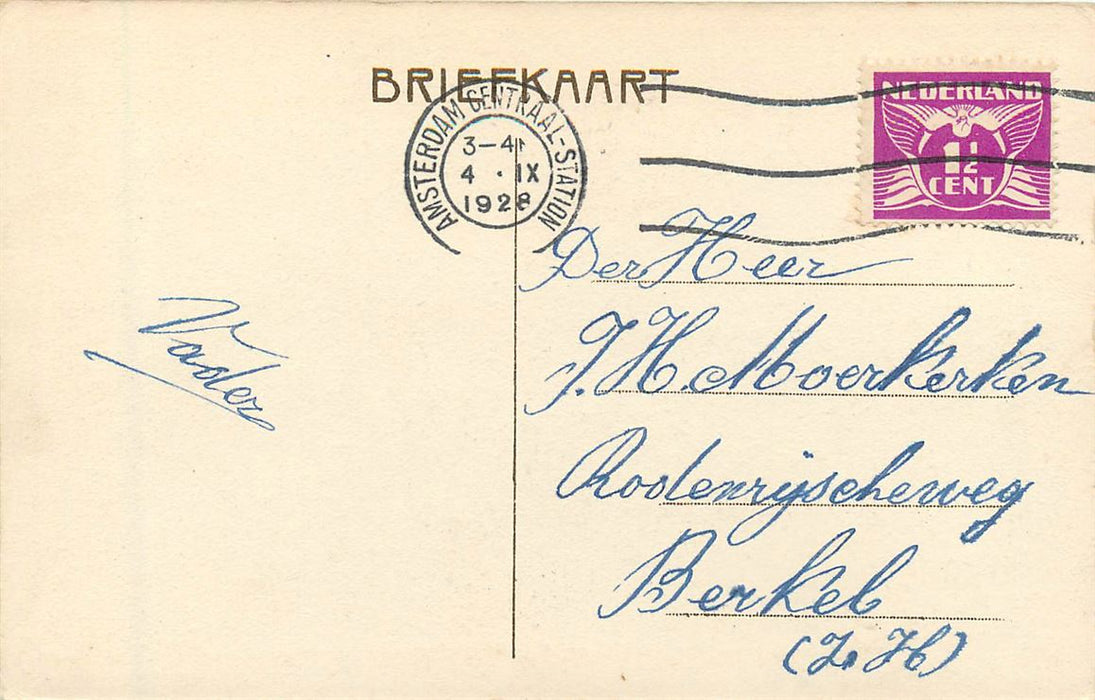 BRIEFKAART
AMSTERDAM CENTRAAL-STATION
3-4
4 · IX
1928
NEDERLAND
1½
CENT
Der Heer
J. H. Moerkerken
Rodenrijscheweg
Berkel
(Z. H)
Vader